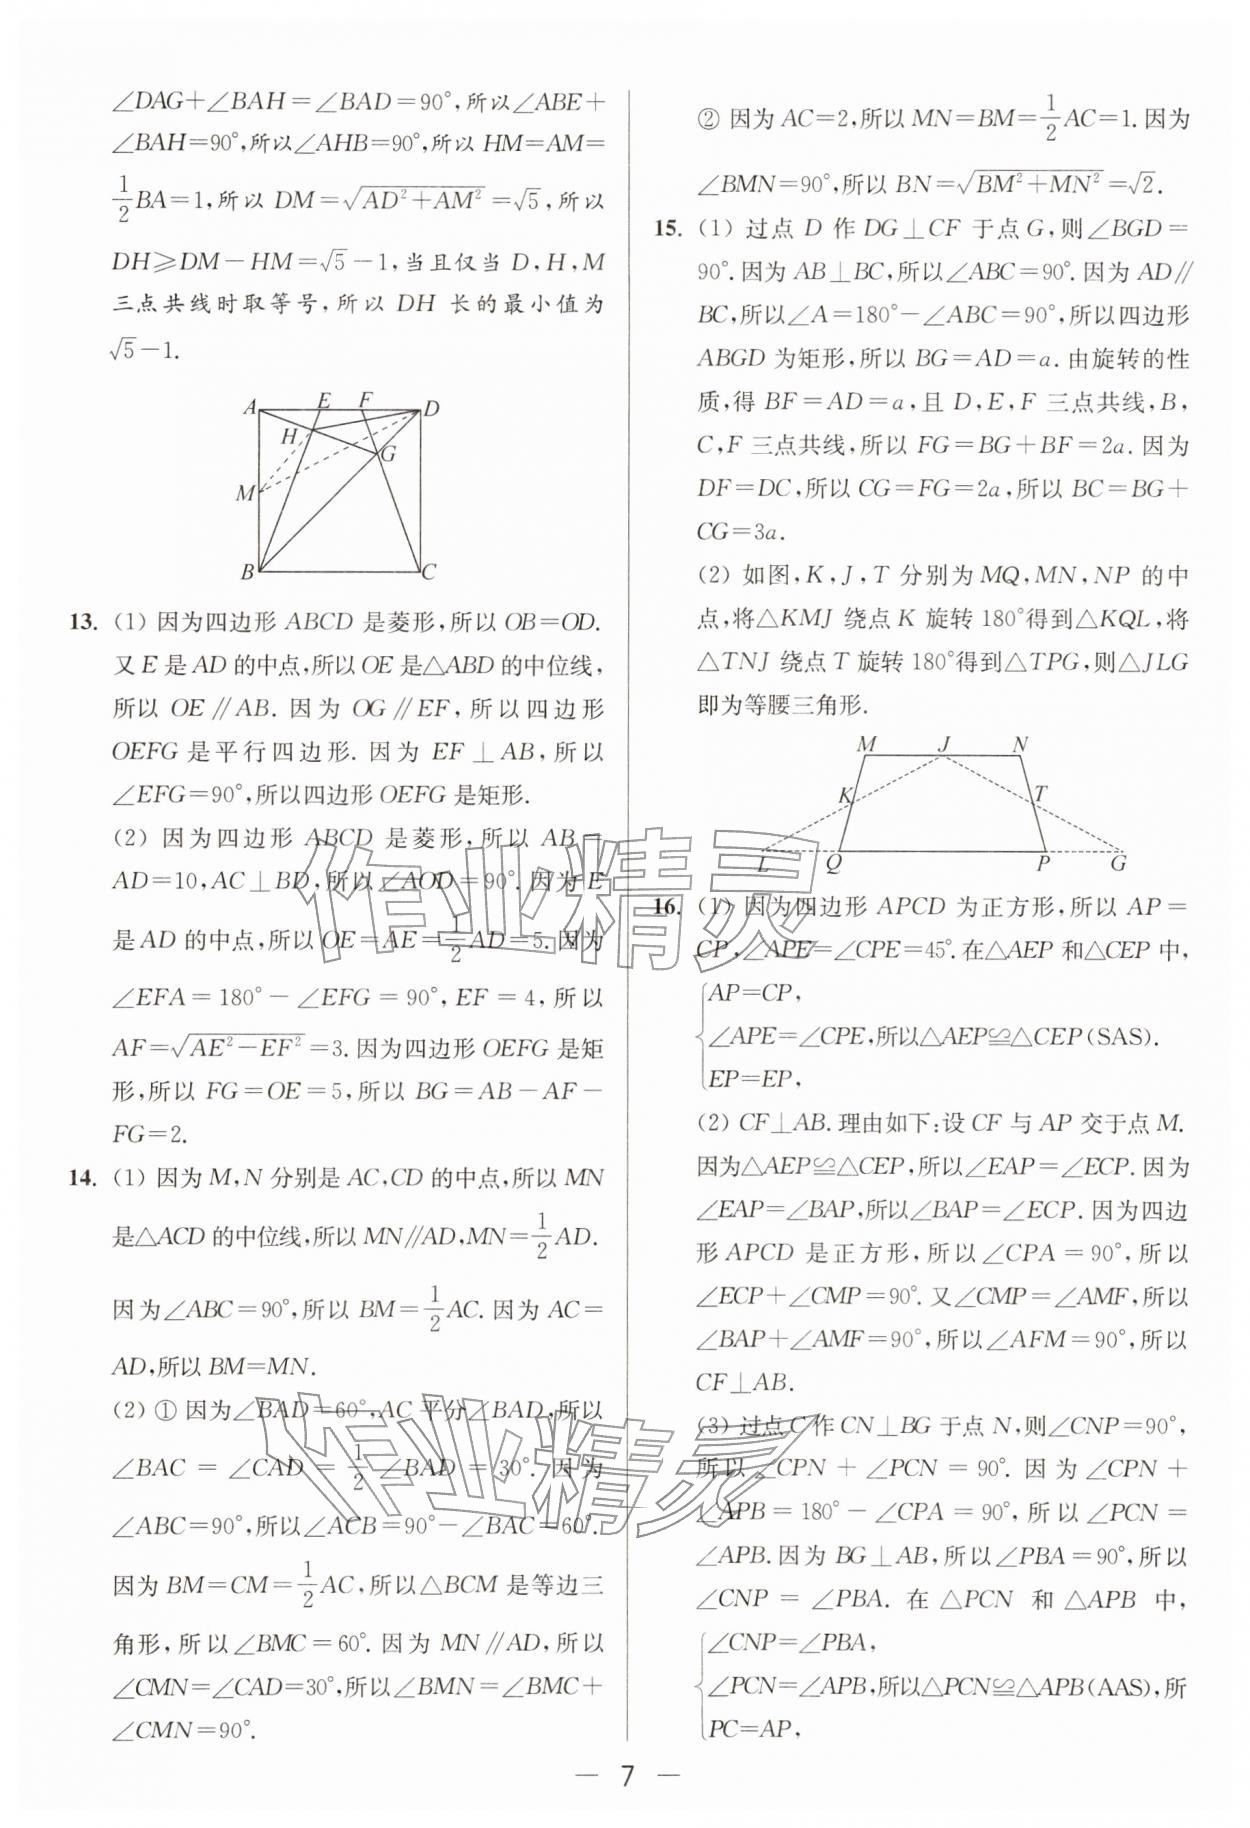 ∠DAG+∠BAH=∠BAD=90°,所以∠ABE+
∠BAH=90°,所以∠AHB=90°,所以 HM=AM=
1/2 BA=1,所以 DM=√(AD²+AM²)=√5,所以
DH⩾DM-HM=√5-1,当且仅当 D,H,M
三点共线时取等号,所以 DH 长的最小值为
√5-1.
A E F D
H
G
M
B C
13. (1) 因为四边形 ABCD 是菱形,所以 OB=OD.
又 E 是 AD 的中点,所以 OE 是△ABD 的中位线,
所以 OE∥AB. 因为 OG∥EF,所以四边形
OEFG 是平行四边形. 因为 EF⊥AB,所以
∠EFG=90°,所以四边形 OEFG 是矩形.
(2) 因为四边形 ABCD 是菱形,所以 AB=
AD=10,AC⊥BD,所以∠AOD=90°. 因为 E
是 AD 的中点,所以 OE=AE=1/2 AD=5. 因为
∠EFA=180°-∠EFG=90°,EF=4,所以
AF=√(AE²-EF²)=3. 因为四边形 OEFG 是矩
形,所以 FG=OE=5,所以 BG=AB-AF-
FG=2.
14. (1) 因为 M,N 分别是 AC,CD 的中点,所以 MN
是△ACD 的中位线,所以 MN∥AD,MN=1/2 AD.
因为∠ABC=90°,所以 BM=1/2 AC. 因为 AC=
AD,所以 BM=MN.
(2) ① 因为∠BAD=60°,AC 平分∠BAD,所以
∠BAC=∠CAD=1/2∠BAD=30°. 因为
∠ABC=90°,所以∠ACB=90°-∠BAC=60°.
因为 BM=CM=1/2 AC,所以△BCM 是等边三
角形,所以∠BMC=60°. 因为 MN∥AD,所以
∠CMN=∠CAD=30°,所以∠BMN=∠BMC+
∠CMN=90°.
② 因为 AC=2,所以 MN=BM=1/2 AC=1. 因为
∠BMN=90°,所以 BN=√(BM²+MN²)=√2.
15. (1) 过点 D 作 DG⊥CF 于点 G,则∠BGD=
90°. 因为 AB⊥BC,所以∠ABC=90°. 因为 AD∥
BC,所以∠A=180°-∠ABC=90°,所以四边形
ABGD 为矩形,所以 BG=AD=a. 由旋转的性
质,得 BF=AD=a,且 D,E,F 三点共线,B,
C,F 三点共线,所以 FG=BG+BF=2a. 因为
DF=DC,所以 CG=FG=2a,所以 BC=BG+
CG=3a.
(2) 如图,K,J,T 分别为 MQ,MN,NP 的中
点,将△KMJ 绕点 K 旋转 180°得到△KQL,将
△TNJ 绕点 T 旋转 180°得到△TPG,则△JLG
即为等腰三角形.
M J N
K T
L Q P G
16. (1) 因为四边形 APCD 为正方形,所以 AP=
CP,∠APE=∠CPE=45°. 在△AEP 和△CEP 中,
AP=CP,
∠APE=∠CPE,所以△AEP≌△CEP(SAS).
EP=EP,
(2) CF⊥AB. 理由如下:设 CF 与 AP 交于点 M.
因为△AEP≌△CEP,所以∠EAP=∠ECP. 因为
∠EAP=∠BAP,所以∠BAP=∠ECP. 因为四边
形 APCD 是正方形,所以∠CPA=90°,所以
∠ECP+∠CMP=90°. 又∠CMP=∠AMF,所以
∠BAP+∠AMF=90°,所以∠AFM=90°,所以
CF⊥AB.
(3) 过点 C 作 CN⊥BG 于点 N,则∠CNP=90°,
所以∠CPN+∠PCN=90°. 因为∠CPN+
∠APB=180°-∠CPA=90°,所以∠PCN=
∠APB. 因为 BG⊥AB,所以∠PBA=90°,所以
∠CNP=∠PBA. 在△PCN 和△APB 中,
∠CNP=∠PBA,
∠PCN=∠APB,所以△PCN≌△APB(AAS),所
PC=AP,
— 7 —
作业精灵
作业精灵